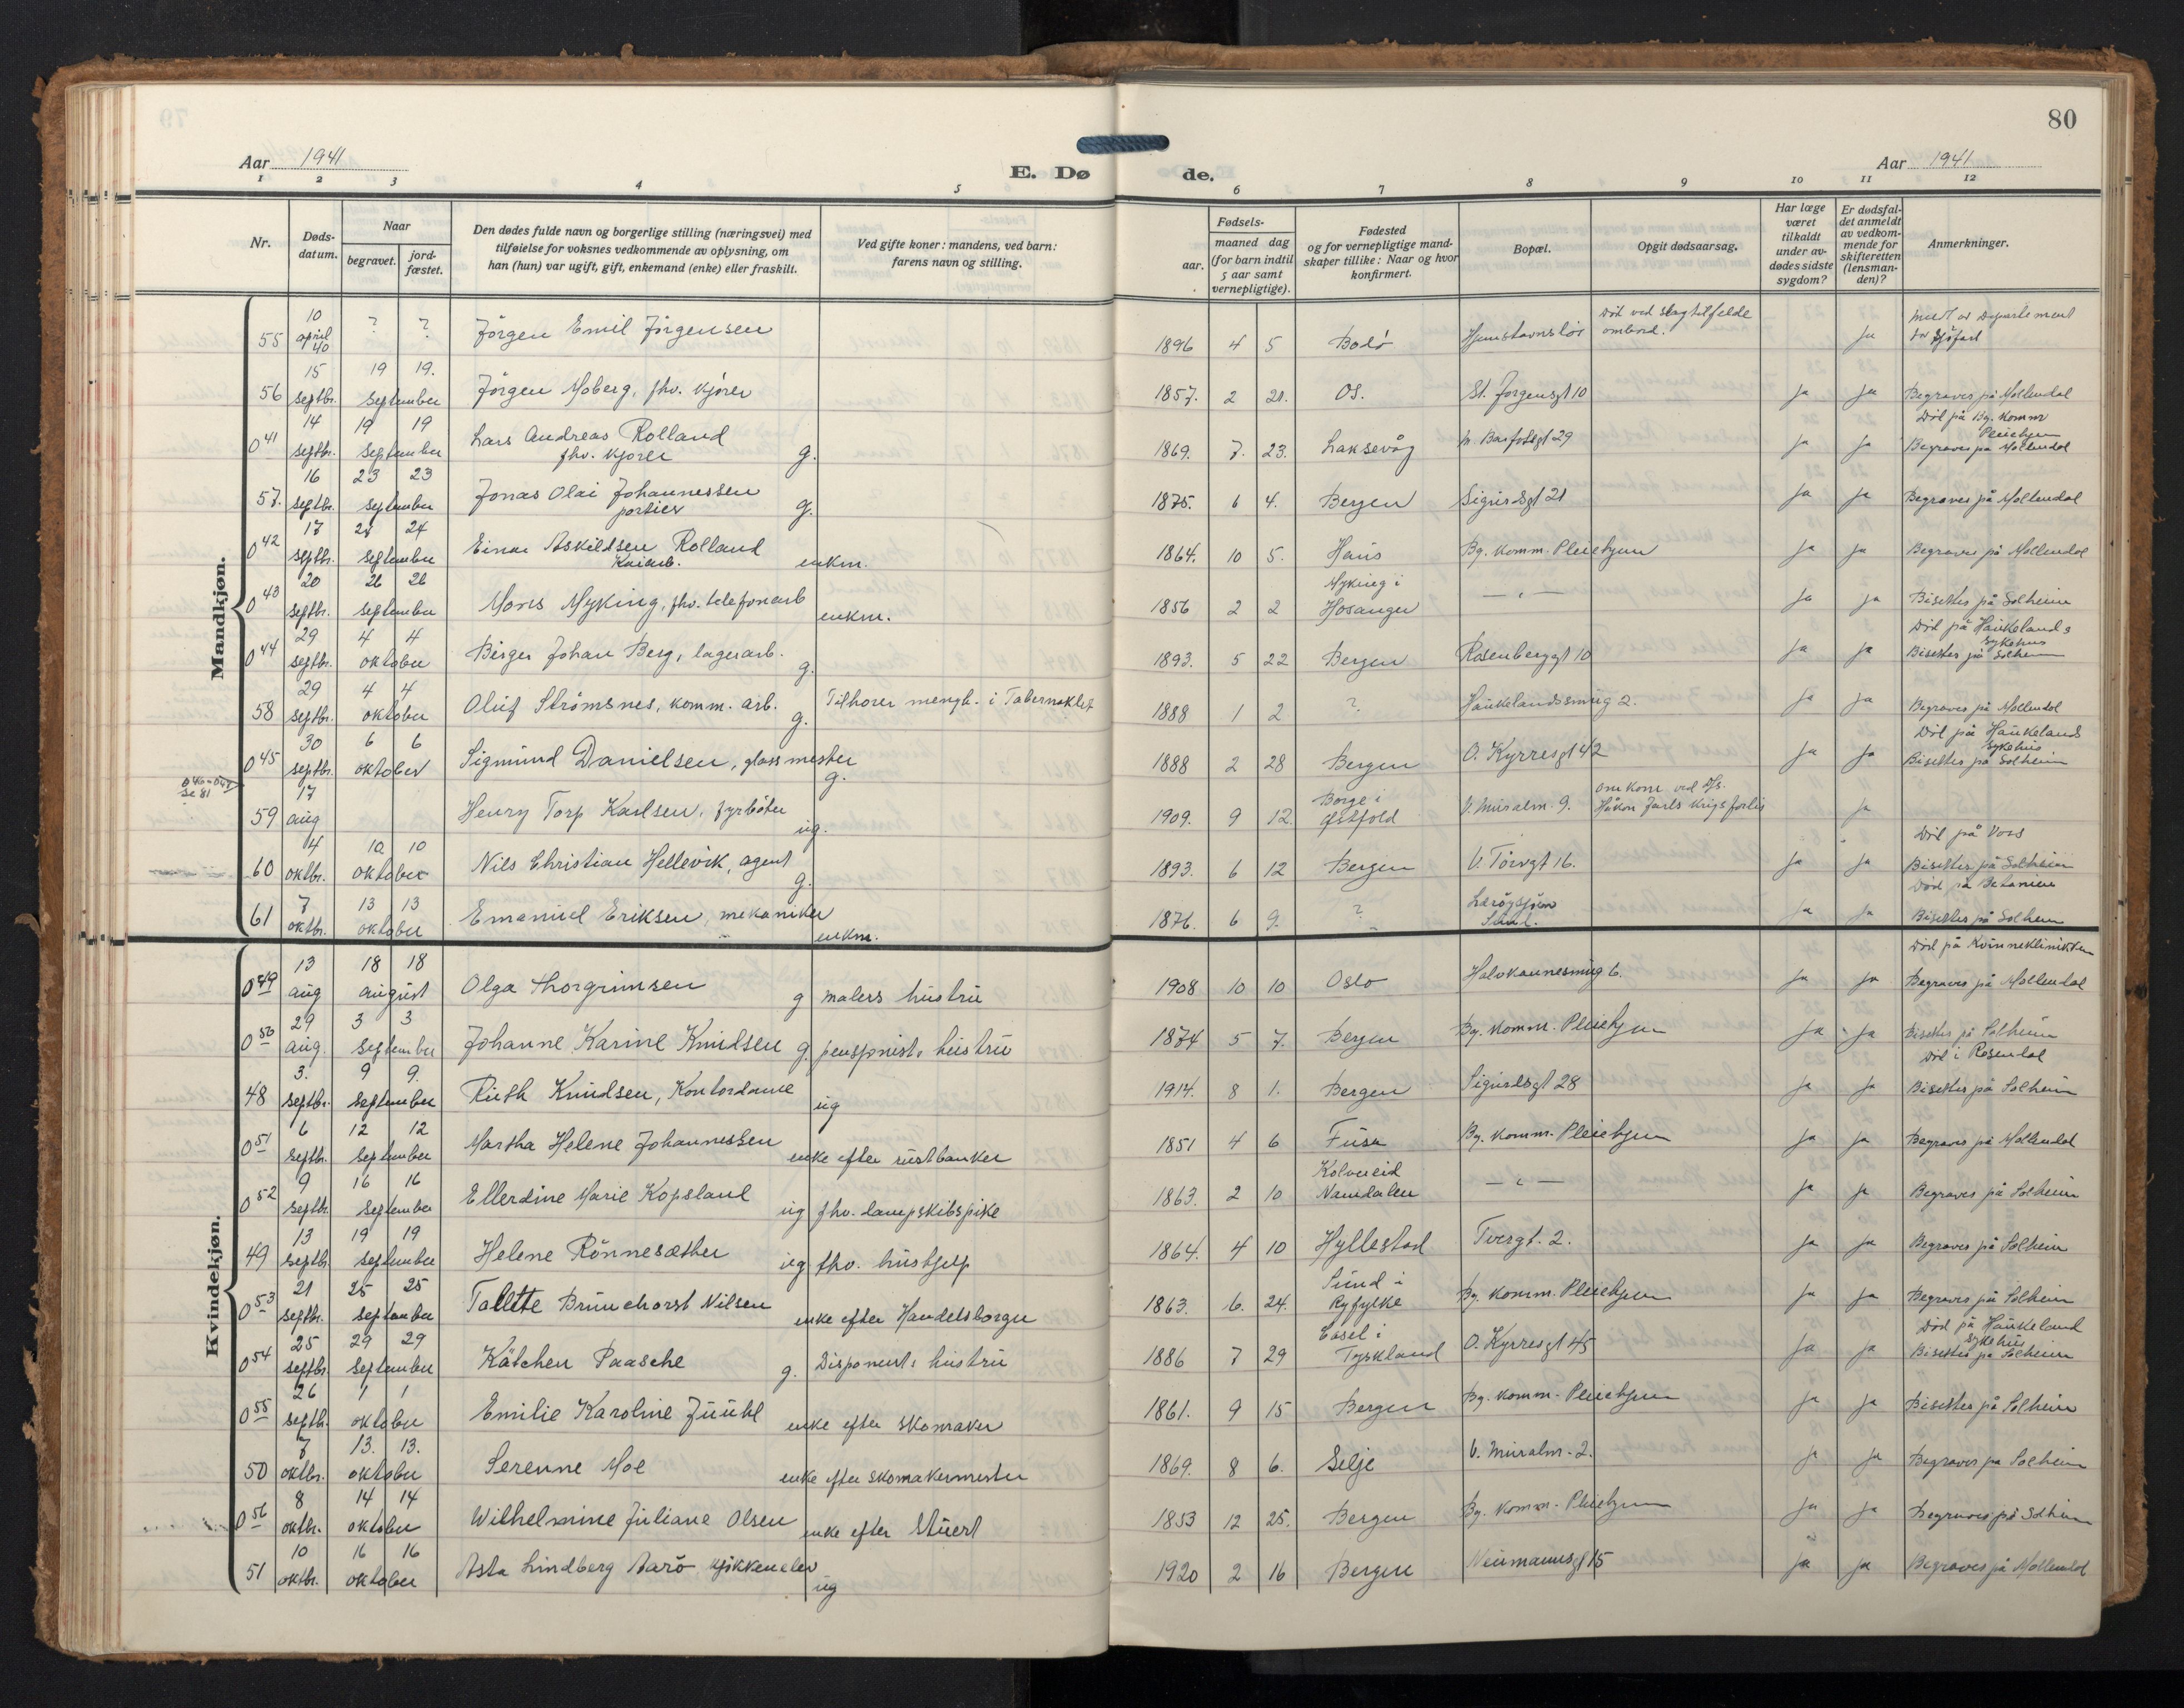 80
Aar 1941
E. Dø de.
Aar 1941
1 2 3 4 5 6 7 8 9 10 11 12
Nr.
Døds-
datum.
Naar
begravet.
jord-
fæstet.
Den dødes fulde navn og borgerlige stilling (næringsvei) med
tilføielse for voksnes vedkommende av oplysning, om
han (hun) var ugift, gift, enkemand (enke) eller fraskilt.
Ved gifte koner: mandens, ved barn:
farens navn og stilling.
Fødsels-
aar.
maaned dag
(for barn indtil
5 aar samt
vernepligtige).
Fødested
og for vernepligtige mand-
skaper tillike: Naar og hvor
konfirmert.
Bopæl.
Opgit dødsaarsag.
Har læge
været
tilkaldt
under av-
dødes sidste
sygdom?
Er dødsfal-
det anmeldt
av vedkom-
mende for
skifteretten
(lensman-
den)?
Anmerkninger.
Mandkjøn.
55 10 april 40 ? ? Jörgen Emil Jörgensen 1896 4 5 Bodö Hjemstavnslös Död ved slagtilfelde ombord. Ja Medt av Departement for Sjöfart
56 15 septbr. 19 19. september Jörgen Moberg, fhv. kjörer 1857. 2 21. Os. St. Jörgensgt 10 Ja Ja Begraves på Möllendal
041 14 septbr. 19 19 september Lars Andreas Rolland fhv. kjörer g. 1869. 7. 23. Laksevåg Ja Ja Död på Bg. Komm Pleiehjem Begraves på Möllendal
57. 16 septbr. 23 23 september Jonas Olai Johannessen portier g. 1875. 6 4. Bergen Sigurdsgt 21 Ja Ja Begraves på Möllendal
042 17 septbr. 24 24 september Einar Askildsen Rolland Kaiarb. enkm. 1864. 10 5. Haus Bg. komm. Pleiehjem Ja Ja Begraves på Möllendal
043 20 septbr. 26 26 september Mons Myking, fhv. telefonarb enkm. 1856 2 2 Myking i Hosanger — " — Ja Ja Bisettes på Solheim
044 29 septbr. 4 4 oktober Birger Johan Berg, lagerarb. g. 1893. 5 22 Bergen Rosenberggt 10 Ja Ja Död på Haukelands Sykehus Bisettes på Solheim
58 29 septbr. 4 4 oktober Oluf Strömsnes, komm. arb. g. Tilhörer mengh. i Tabernaklet 1888 1 2 ? Haukelandssmug 2. Ja Ja Begraves på Möllendal
045 30 septbr. 6 6 oktober Sigmund Danielsen, glassmester g. 1888 2 28 Bergen O. Kyrresgt 42 Ja Ja Död på Haukelands Sykehus Bisettes på Solheim
046-048 Se 81
59 17 aug Henry Torp Karlsen, fyrböter ug. 1909. 9 12. Borge i Østfold V. Muralm. 9. omkom ved D/s. Håkon Jarls krigsforlis Ja
60 4 oktbr. 10 10 oktober Nils Christian Hellevik, agent g. 1893. 6 12 Bergen V. Torvgt 16. Ja Ja Död på Voss Bisettes på Solheim
61 7 oktbr. 13 13 oktober Emanuel Eriksen, mekaniker enkm. 1876. 6 9. ? Ja Ja Död på Betanien Bisettes på Solheim
Kvindekjøn.
049 13 aug 18 18 august Olga Thorgrimsen g malers hustru 1908 10 10 Oslo Halvkannesmug 6. Ja Ja Död på Kvinneklinikken Begraves på Möllendal
050 29 aug. 3 3 september Johanne Karine Knudsen g. pensjonists hustru 1874 5 7. Bergen Bg. komm. Pleiehjem Ja Ja Bisettes på Solheim
48 3. septbr. 9 9. september Ruth Knudsen, Kontordame ug 1914. 8 1. Bergen Sigurdsgt 28 Ja Ja Död i Rosendal Bisettes på Solheim
051 6 septbr. 12 12 september Martha Helene Johannessen enke efter rustbanker 1851 4 6 Fusa Bg. komm. Pleiehjem Ja Ja Begraves på Möllendal
052 9 septbr. 16 16 september Ellerdine Marie Kopsland ug fhv. dampskibspike 1863. 2 10 Kolvereid Namdalen — " — Ja Ja Begraves på Solheim
49 13 septbr. 19 19 september Helene Rönnesæther ug fhv. hushjelp 1864. 4 10 Hyllestad Tvergt. 2. Ja Ja Begraves på Solheim
053 21 septbr. 25 25 september Tallette Brunchorst Nilsen enke efter Handelsborger 1863. 6. 24. Sund i Ryfylke Bg. komm. Pleiehjem Ja Ja Begraves på Solheim
054 25 septbr. 29 29 september Kätchen Paasche g. Disponents hustru 1886 7 29 Casel i Tyskland O. Kyrresgt 45 Ja Ja Död på Haukeland Sykehus Bisettes på Solheim
055 26 septbr. 1 1 oktober Emilie Karoline Juuhl enke efter skomaker 1861. 9 15 Bergen Bg. komm. Pleiehjem Ja Ja Bisettes på Solheim
50 7 oktbr. 13. 13. oktober Serenne Moe enke efter skomakermester 1869. 8 6. Selje V. Muralm. 2. Ja Ja Begraves på Solheim
056 8 oktbr. 14 14 oktober Wilhelmine Juliane Olsen enke efter Stuert 1853 12 25. Bergen Bg. komm. Pleiehjem Ja Ja Begraves på Solheim
51 10 oktbr. 16 16 oktober Asta Lindberg Aarö kjökkenelev ug 1920 2 16 Bergen Neumannsgt 15 Ja Ja Begraves på Möllendal